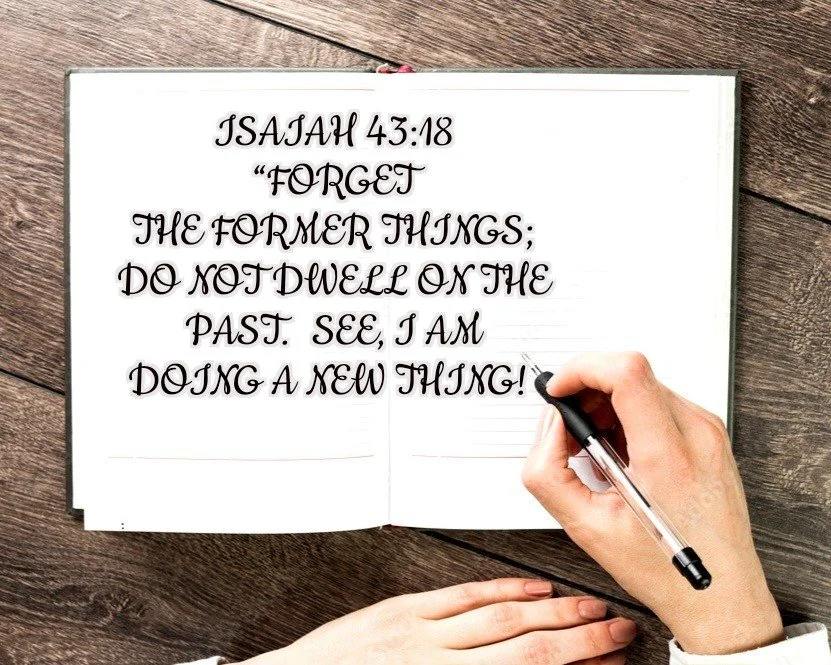 ISAIAH 43:18
“FORGET
THE FORMER THINGS;
DO NOT DWELL ON THE
PAST. SEE, I AM
DOING A NEW THING!